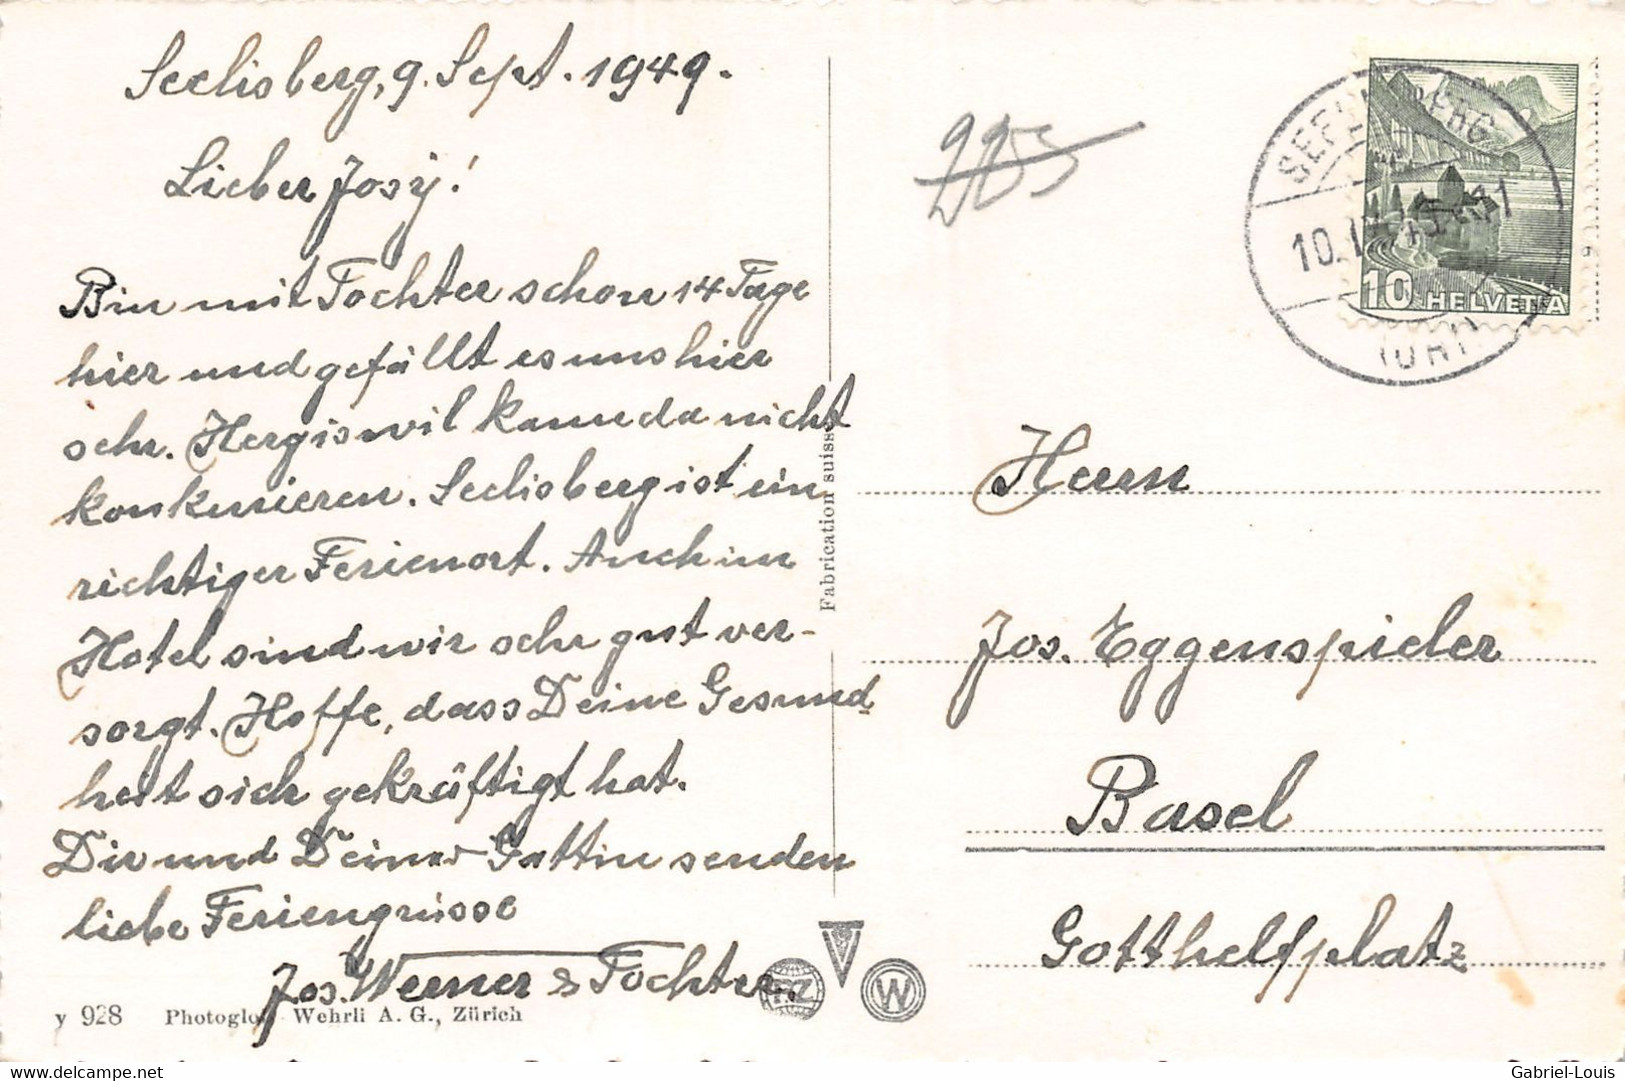 Seelisberg, 9. Sept. 1949.
Lieber Josy!
Bin mit Tochter schon 14 Tage
hier und gefällt es uns hier
sehr. Hergiswil kann da nicht
konkurieren. Seelisberg ist ein
richtiger Ferienort. Auch im
Hotel sind wir sehr gut ver-
sorgt. Hoffe, dass Deine Gesund-
heit sich gekräftigt hat.
Dir und Deiner Gattin senden
liebe Feriengrüsse
Jos. Werner & Tochter.
y 928 Photoglob Wehrli A. G., Zürich
Fabrication suisse
PZ
W
SEELISBERG
10.
(URI)
10 HELVETIA
Herrn
Jos. Eggenspieler
Basel
Gotthelfplatz
Gabriel-Louis